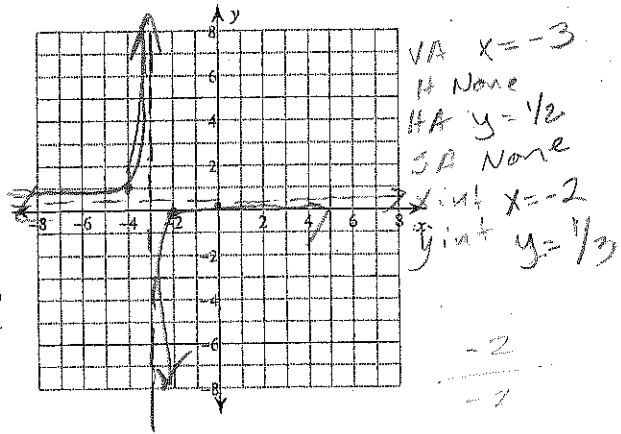 y
8
6
4
2
-8 -6 -4 -2 2 4 8 x
-2
-4
-6
-8
VA x = -3
H None
HA y = 1/2
SA None
x int x = -2
y int y = 1/3
-2